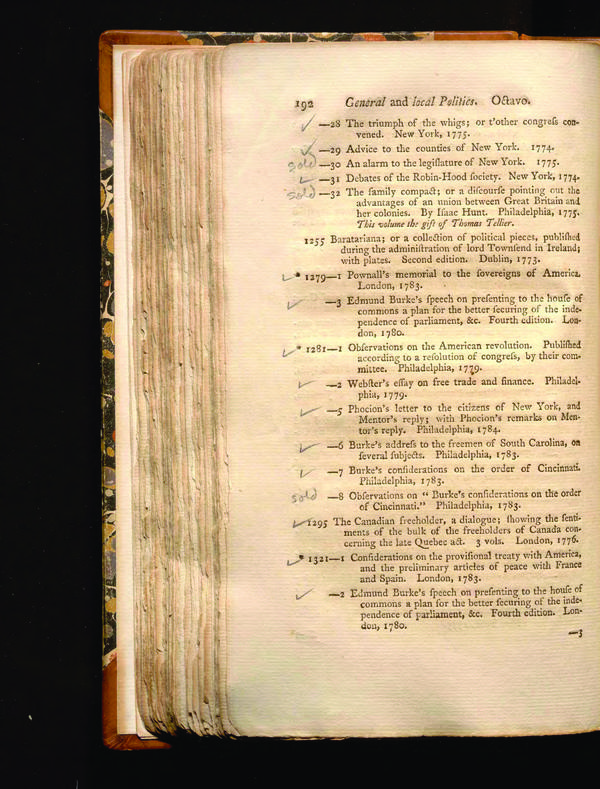 192 General and local Politics. Octavo.
—28 The triumph of the whigs; or t'other congreſs con-
vened. New York, 1775.
—29 Advice to the counties of New York. 1774.
sold —30 An alarm to the legiſlature of New York. 1775.
—31 Debates of the Robin-Hood ſociety. New York, 1774.
sold —32 The family compact; or a diſcourſe pointing out the
advantages of an union between Great Britain and
her colonies. By Iſaac Hunt. Philadelphia, 1775.
This volume the gift of Thomas Tellier.
1255 Baratariana; or a collection of political pieces, publiſhed
during the adminiſtration of lord Townſend in Ireland;
with plates. Second edition. Dublin, 1773.
* 1279—1 Pownall's memorial to the ſovereigns of America.
London, 1783.
—3 Edmund Burke's ſpeech on preſenting to the houſe of
commons a plan for the better ſecuring of the inde-
pendence of parliament, &c. Fourth edition. Lon-
don, 1780.
* 1281—1 Obſervations on the American revolution. Publiſhed
according to a reſolution of congreſs, by their com-
mittee. Philadelphia, 1779.
—2 Webſter's eſſay on free trade and finance. Philadel-
phia, 1779.
—5 Phocion's letter to the citizens of New York, and
Mentor's reply; with Phocion's remarks on Men-
tor's reply. Philadelphia, 1784.
—6 Burke's addreſs to the freemen of South Carolina, on
ſeveral ſubjects. Philadelphia, 1783.
—7 Burke's conſiderations on the order of Cincinnati.
Philadelphia, 1783.
sold —8 Obſervations on " Burke's conſiderations on the order
of Cincinnati." Philadelphia, 1783.
1295 The Canadian freeholder, a dialogue; ſhowing the ſenti-
ments of the bulk of the freeholders of Canada con-
cerning the late Quebec act. 3 vols. London, 1776.
* 1321—1 Conſiderations on the proviſional treaty with America,
and the preliminary articles of peace with France
and Spain. London, 1783.
—2 Edmund Burke's ſpeech on preſenting to the houſe of
commons a plan for the better ſecuring of the inde-
pendence of parliament, &c. Fourth edition. Lon-
don, 1780.
—3